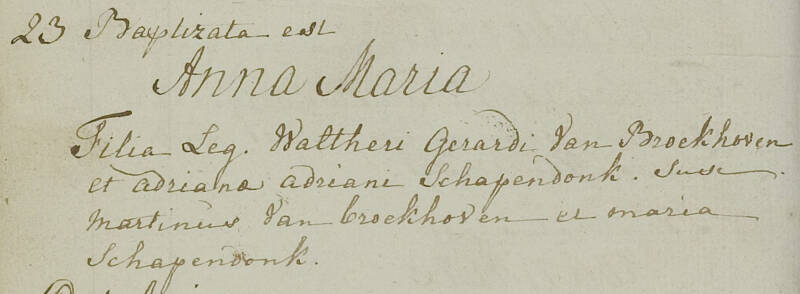 23 Baptizata est
Anna Maria
Filia Leg. Waltheri Gerardi Van Broekhoven
et adrianæ adriani Schapendonk. Susc.
martinus Van broekhoven et maria
Schapendonk.